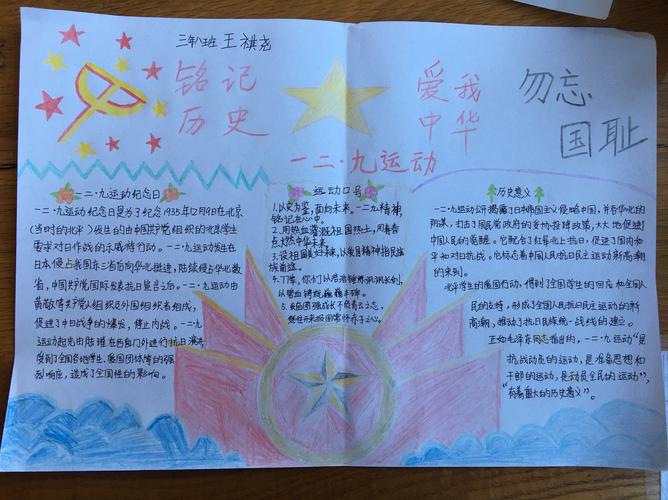 三年八班 王祺尧
铭记
历史
爱我
中华
勿忘
国耻
一二·九运动
一二·九运动纪念日
一二·九运动纪念日是为了纪念1935年12月9日在北京
(当时的北平)发生的由中国共产党组织的北平学生
要求对日作战的示威游行动。一二·九运动发生在
日本侵占我国东三省后向华北挺进,陆续侵占华北数
省,中国共产党国际发表抗日宣言之后。一二·九运动由
黄敬等共产党人组织及外国组织者组成,
促进了中日战争的爆发,停止内战。一二·九
运动起先由陆璀在西直门外进行抗日演讲
受到全国各地学生、爱国团体等的强
烈响应,造成了全国性的影响。
运动口号
1.以史为鉴,面向未来。一二九精神,
铭记在心中。
2.用热血灌溉祖国热土,用青春
点燃中华未来。
3.设祖国美好未来,以爱国精神招民
族前途。
5.发奋图强成长不忘青云志,
历史意义
一二·九运动公开揭露了日本帝国主义侵略中国,并吞华北的
阴谋,打击了国民党政府的妥协投降政策,大大地促进了
中国人民的觉醒。它配合了红军北上抗日,促进了国内和
平和对日抗战。它标志着中国人民抗日民主运动新高潮
的来到。
北平学生的爱国行动,得到了全国学生的响应和全国人
民的支持,形成了全国人民抗日民主运动的新
高潮,推动了抗日民族统一战线的建立。
正如毛泽东同志指出的,一二·九运动“是
抗战动员的运动,是准备思想和
干部的运动,是动员全民的运动”,
“有着重大的历史意义”。